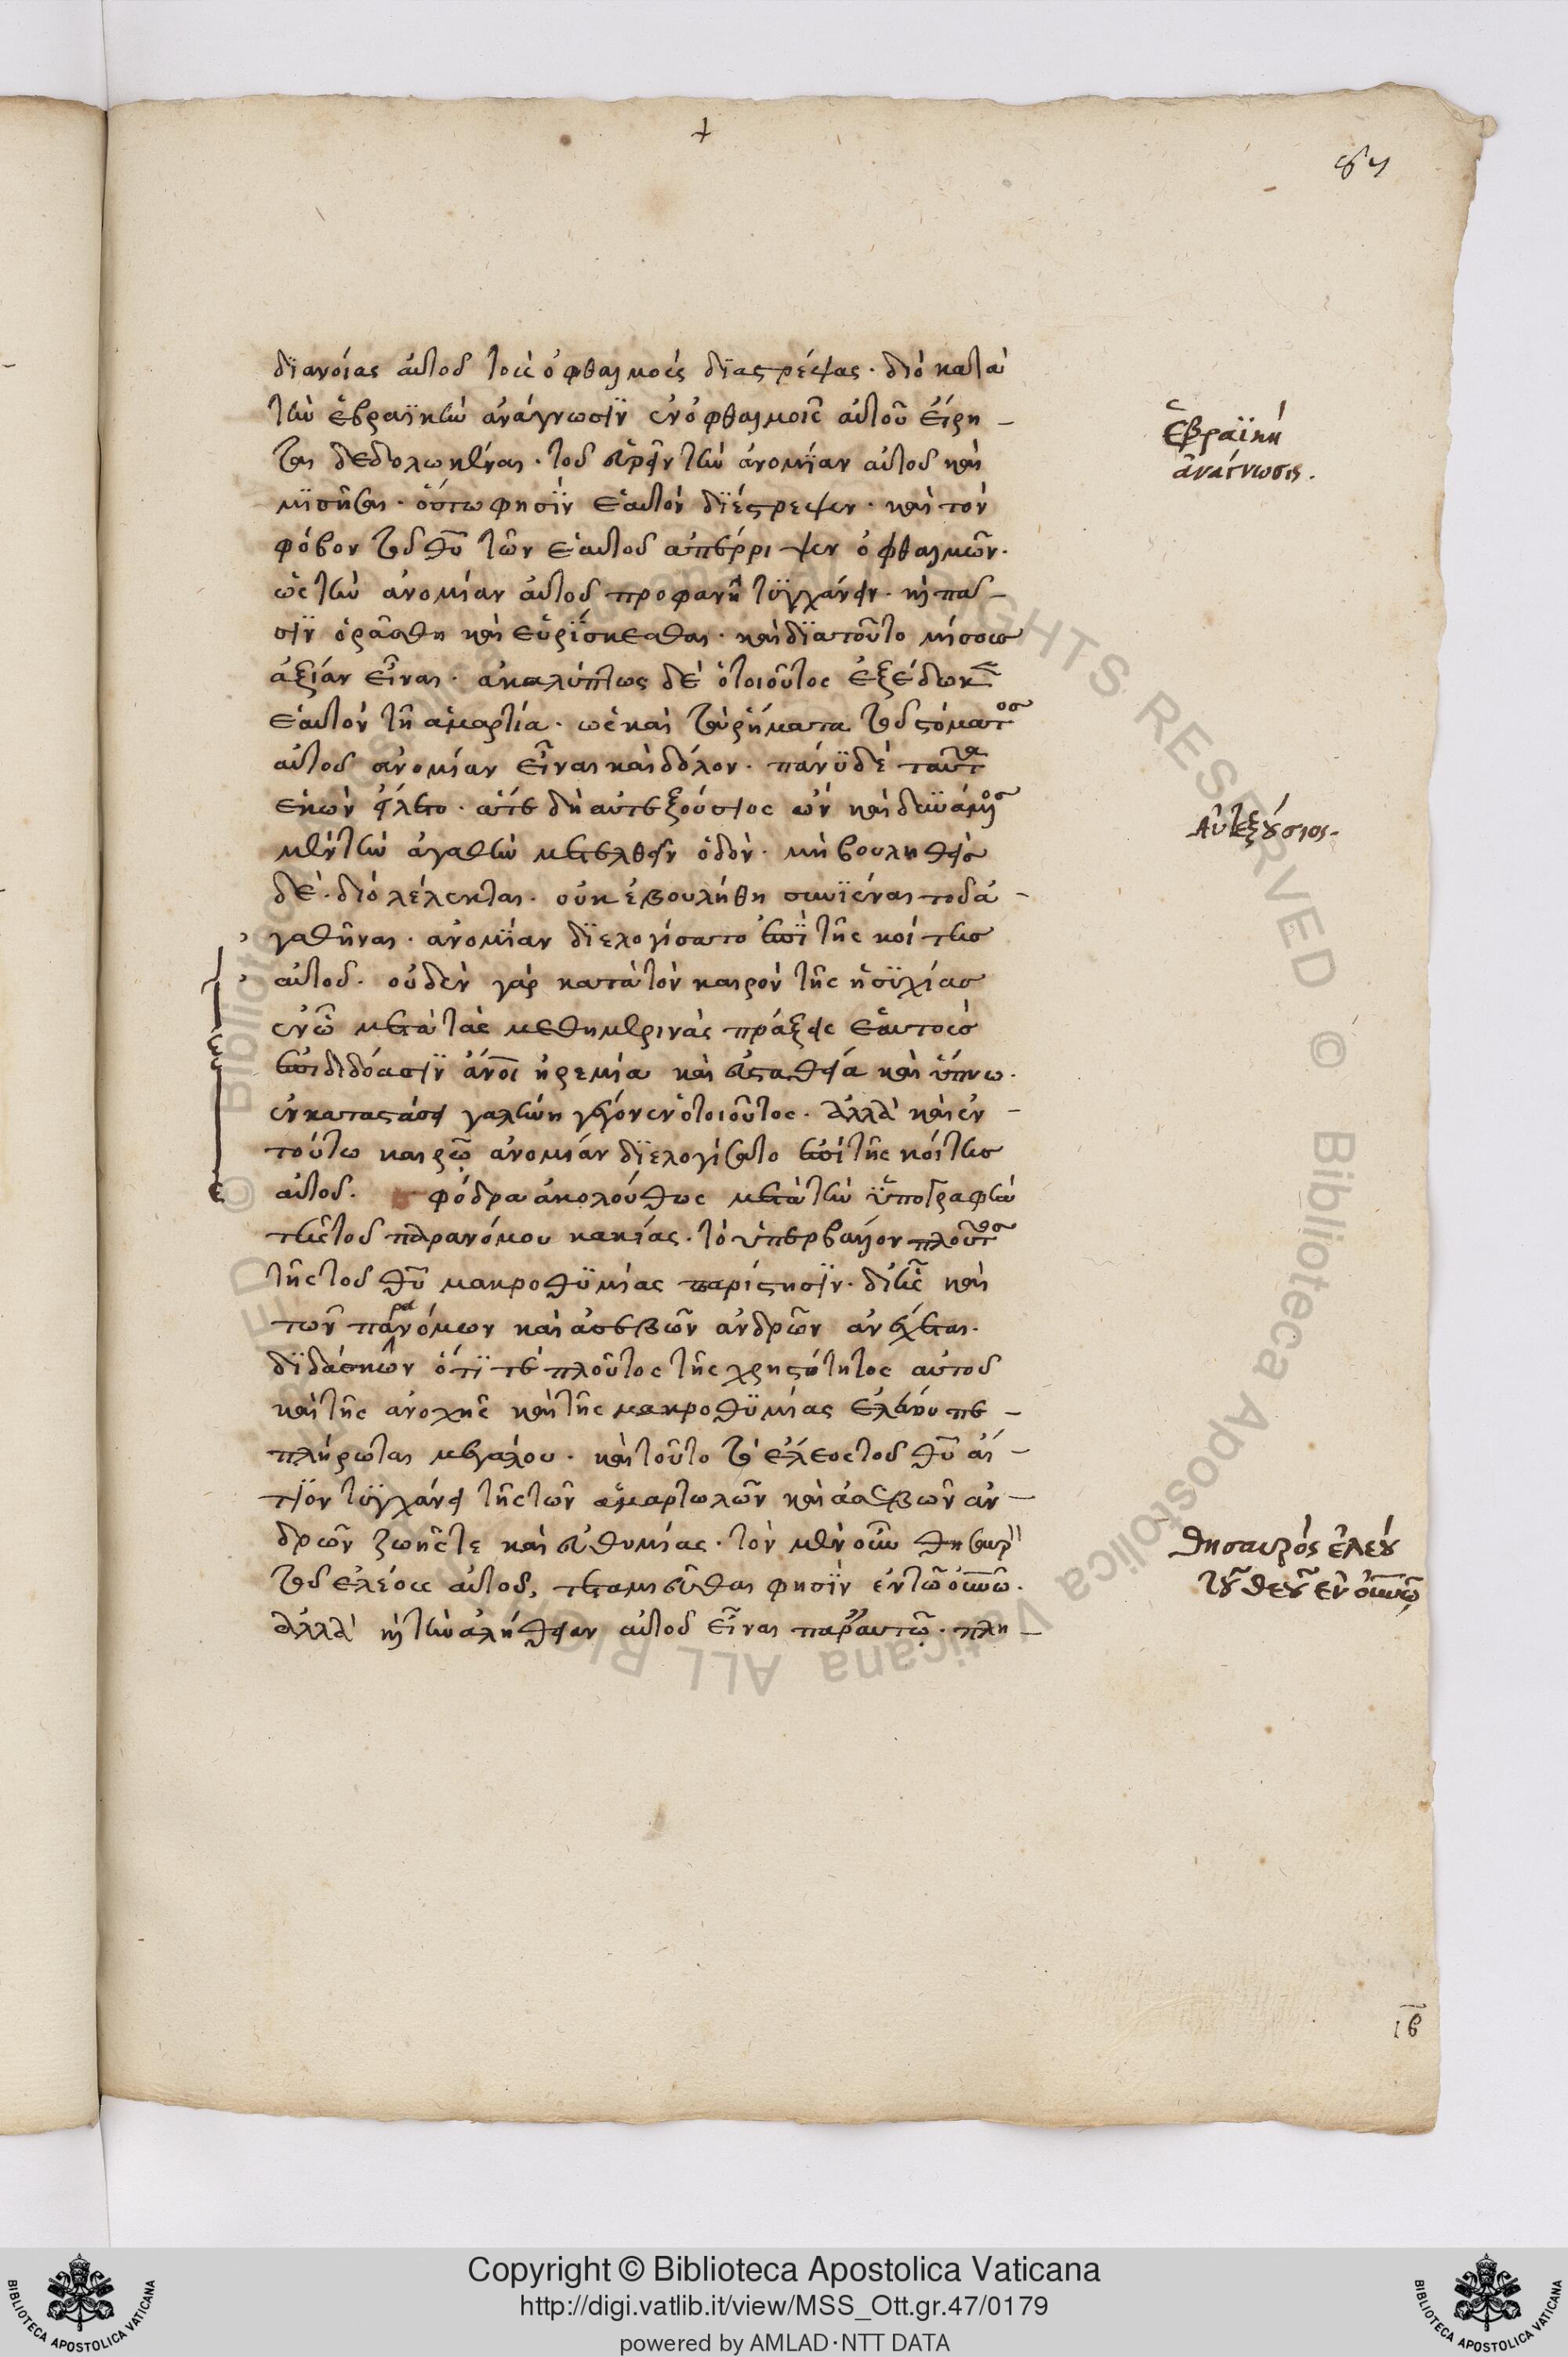 διανοίας αὐτοῦ τοὺς ὀφθαλμοὺς διαστρέψας· διὸ κατὰ
τὴν ἑβραϊκὴν ἀνάγνωσϊν ἐν ὀφθαλμοῖς αὐτοῦ εἴρη –
ται δεδολωκέναι· τοῦ εὑρεῖν τὴν ἀνομίαν αὐτοῦ καὶ
μισῆσαι· οὕτω φησὶν ἑαυτὸν διέστρεψεν· καὶ τὸν
φόβον τοῦ θῦ τῶν ἑαυτοῦ ἀπέρριψεν ὀφθαλμῶν·
ὡς τὴν ἀνομίαν αὐτοῦ προφανῆ τυγχάνειν· κὴ πᾶ –
σϊν ὁρᾶσθαι καὶ εὑρίσκεσθαι· καὶ διατοῦτο μίσους
ἀξίαν εἶναι· ἀκαλύπτως δὲ ὁ τοιοῦτος ἐξέδωκε
ἑαυτὸν τῆ ἁμαρτία· ὡς καὶ τὰ ῥήματα τοῦ στόματος
αὐτοῦ ἀνομίαν εἶναι καὶ δόλον· πάνυ δὲ ταῦτα
ἑκὼν εἵλετο· ἅτε δὴ αὐτεξούσιος ὢν καὶ δυνάμενος
μὲν τὴν ἀγαθὴν μετελθεῖν ὁδόν· μὴ βουληθεὶς
δέ· διὸ λέλεκται· οὐκ ἐβουλήθη συνϊέναι τοῦ ἀ –
γαθῆναι· ἀνομίαν διελογίσατο ἐπὶ τῆς κοίτης
αὐτοῦ· οὐδὲν γὰρ κατὰ τὸν καιρὸν τῆς ἡσυχίας
ἐν ᾧ μετὰ τὰς μεθημερινὰς πράξεις ἑαυτοὺς
ἐπιδιδόασϊν ἄνοι ἠρεμία καὶ εὐσταθεία καὶ ὕπνω·
ἐν καταστάσει γαλήνη γέγονεν ὁ τοιοῦτος· ἀλλὰ καὶ ἐν –
τούτω καιρῷ ἀνομίαν διελογίσατο ἐπὶ τῆς κοίτης
αὐτοῦ· φόδρα ἀκολούθως μετὰ τὴν ὑπογραφὴν
τῆς τοῦ παρανόμου κακίας· τὸ ὑπερβάλλον πλοῦτος
τῆς τοῦ θῦ μακροθυμίας παρίστησϊν· δι' ἧς καὶ
τῶν παρανόμων καὶ ἀσεβῶν ἀνδρῶν ἀνέχεται·
διδάσκων ὅτι τὲ πλοῦτος τῆς χρηστότητος αὐτοῦ
καὶ τῆς ἀνοχῆς καὶ τῆς μακροθυμίας ἐλέου πε –
πλήρωται μεγάλου· καὶ τοῦτο τὸ ἔλεος τοῦ θῦ αἴ –
τιον τυγχάνει τῆς τῶν ἁμαρτωλῶν καὶ ἀσεβῶν ἀν –
δρῶν ζωῆς τε καὶ εὐθυμίας· τὸν μὲν οὖν θησαυρὸ
τοῦ ἐλέους αὐτοῦ, ταμιεῦσθαι φησὶν ἐν τῷ οὐνῶ·
ἀλλὰ κὴ τὴν ἀλήθειαν αὐτοῦ εἶναι παρ' αὐτῷ· πλη –
Ἑβραϊκὴ
ἀνάγνωσις.
Αὐτεξούσιος.
Θησαυρὸς ἐλέου
τοῦ θεοῦ ἐν οὐνῷ
ιβ
Copyright © Biblioteca Apostolica Vaticana
http://digi.vatlib.it/view/MSS_Ott.gr.47/0179
powered by AMLAD·NTT DATA